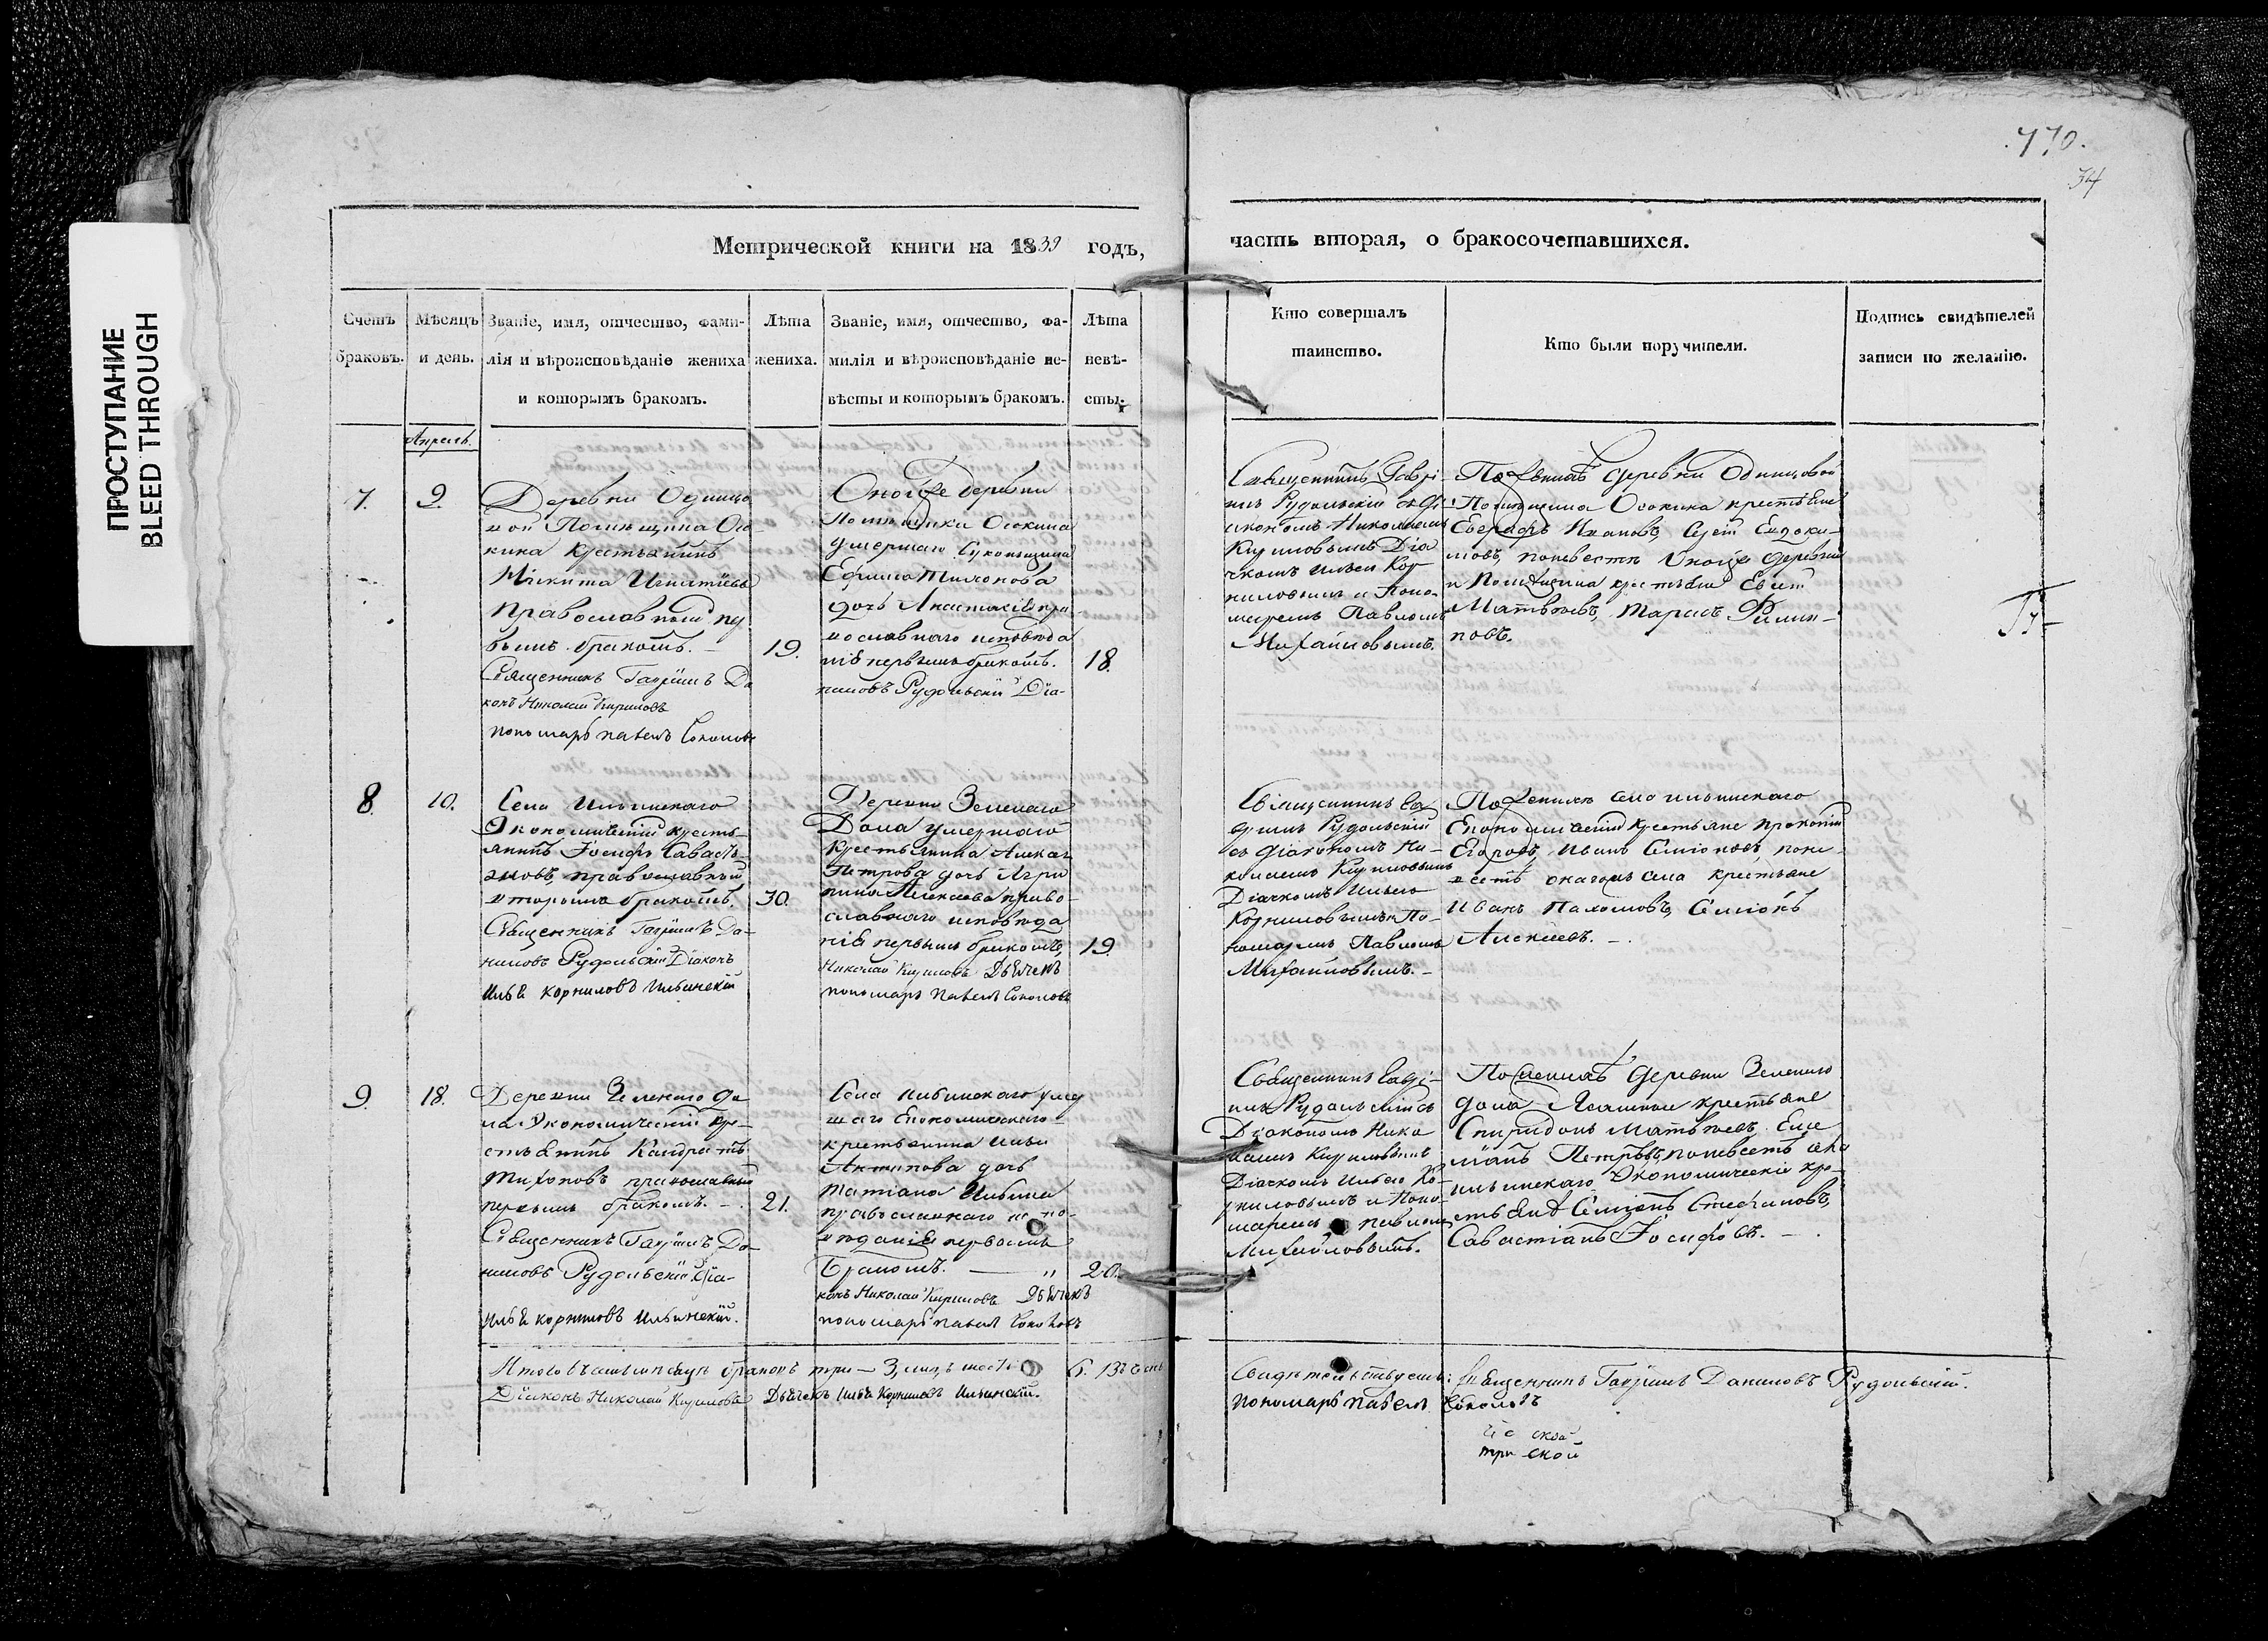 ПРОСТУПАНИЕ
BLEED THROUGH
770.
34
Метрической книги на 1839 годъ,
часть вторая, о бракосочетавшихся.
Счетъ браковъ.
Мѣсяцъ и день.
Званіе, имя, отчество, фами-
лія и вѣроисповѣданіе жениха
и которымъ бракомъ.
Лѣта
жениха.
Званіе, имя, отчество, фа-
милія и вѣроисповѣданіе не-
вѣсты и которымъ бракомъ.
Лѣта
невѣ-
сты.
Кто совершалъ
таинство.
Кто были поручители.
Подпись свидѣтелей
записи по желанію.
Апрель.
7.
9.
Деревни Одинцо
вой Помѣщика Осо
кина крестьянинъ
Никита Игнатіевъ
православный пер
вымъ бракомъ.
19.
Священникъ Гавріилъ Да
конъ Николай Кириловъ
пономарь павелъ Соколовъ
Оной же деревни
Помѣщика Осокина
умершаго
дочь Анастасія пра-
вославнаго исповѣда
нія первымъ бракомъ.
18.
ниловъ Рудольскій Діа-
Священникъ Гаврі-
илъ Рудольскій съ Ді-
якономъ Николаемъ
Кириловымъ Дія
чкомъ Ильею Кор
ниловымъ и Поно-
маремъ Павломъ
Михайловымъ.
По женихѣ деревни Одинцовой
Помѣщика Осокина крестьяне
Ивановъ, Евдоки-
мовъ, по невестѣ Оной же деревни
и Помѣщика крестьяне
Матвѣевъ, Тарасъ Филип-
повъ.
8.
10.
Села Ильинскаго
Экономическій кресть-
янинъ Іосифъ Савасть-
яновъ, православный
вторымъ бракомъ.
30.
Священникъ Гавріилъ Да-
ниловъ Рудольскій Діаконъ
Илья Корниловъ Ильинскій
Деревни Зеленаго
Дола умершаго
крестьянина Алексея
Петрова дочь Агри
пина Алексеева право-
славнаго исповѣда
нія первымъ бракомъ,
19.
Николай Кириловъ Дьячекъ
пономарь павелъ Соколовъ
Священникъ Га
вріилъ Рудольскій
съ Діакономъ Ни-
колаемъ Кириловымъ
Діачкомъ Ильею
Корниловымъ и По-
номаремъ Павломъ
Михайловымъ.
По женихѣ села ильинскаго
Економическіи крестьяне Прокопій
Егоровъ, Иванъ Семіоновъ, поне-
вестѣ онагожъ села крестьяне
Иванъ Пахомовъ, Семіонъ
Алексеевъ.
9.
18.
Деревни Зеленаго до
ла Экономическій кре-
стьянинъ Кандратъ
Тихоновъ православный
первымъ бракомъ.
21.
Священникъ Гавріилъ Да-
ниловъ Рудольскій Діа-
Илья Корниловъ Ильинскій.
Села ильинскаго умер
шаго Економическаго
крестьянина Ильи
Антипова дочь
Татіана Ильина
православнаго испо-
вѣданія первымъ
бракомъ.
20.
конъ Николай Кириловъ Дьячекъ
пономарь павелъ Соколовъ
Священникъ Гаврі-
илъ Рудольскій съ
Діакономъ Нико
лаемъ Кириловымъ
Діачкомъ Ильею Ко-
рниловымъ и Поно-
маремъ павломъ
Михайловымъ.
По женихѣ деревни Зеленаго
дола крестьяне
Спиридонъ Матвѣевъ, Еме
ліанъ Петровъ, поневестѣ села
ильинскаго Экономическіе кре-
стьяне Семіонъ Степановъ,
Савастіанъ Іосифовъ.
Итого бракомъ три — 3, лицъ шесть 6.
Діаконъ Николай Кириловъ Дьячекъ Илья Корниловъ Ильинскій.
Свидѣтельствуемъ: Священникъ Гавріилъ Даниловъ Рудольскій.
пономарь павелъ Соколовъ